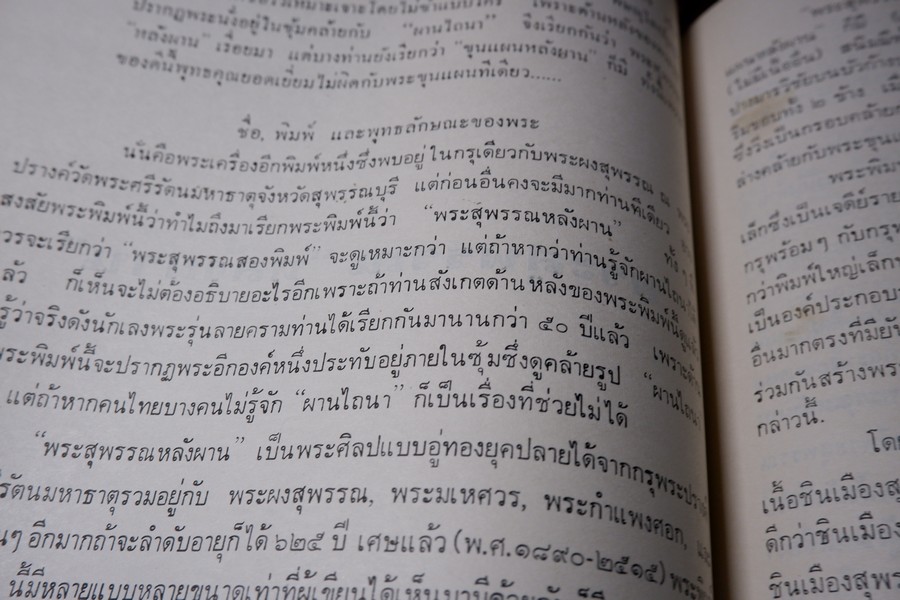 ปรากฏพระนั่งอยู่ในซุ้มคล้ายกับ "ผานไถนา" จึงเรียกกันว่า
"หลังผาน" เรื่อยมา แต่บางท่านยังเรียกว่า "ขุนแผนหลังผาน" ก็มี
ของดีนี้พุทธคุณยอดเยี่ยมไม่ผิดกับพระขุนแผนทีเดียว......
ชื่อ, พิมพ์ และพุทธลักษณะของพระ
นั่นคือพระเครื่องอีกพิมพ์หนึ่งซึ่งพบอยู่ในกรุเดียวกับพระผงสุพรรณ ณ
ปรางค์วัดพระศรีรัตนมหาธาตุจังหวัดสุพรรณบุรี แต่ก่อนอื่นคงจะมีมากท่านทีเดียว
สงสัยพระพิมพ์นี้ว่าทำไมถึงมาเรียกพระพิมพ์นี้ว่า "พระสุพรรณหลังผาน"
ควรจะเรียกว่า "พระสุพรรณสองพิมพ์" จะดูเหมาะกว่า แต่ถ้าหากว่าท่านรู้จักผานไถนา
ก็เห็นจะไม่ต้องอธิบายอะไรอีกเพราะถ้าท่านสังเกตด้านหลังของพระพิมพ์นี้
รู้ว่าจริงดังนักเลงพระรุ่นลายครามท่านได้เรียกกันมานานกว่า ๕๐ ปีแล้ว
พระพิมพ์นี้จะปรากฏพระอีกองค์หนึ่งประทับอยู่ภายในซุ้มซึ่งดูคล้ายรูป "ผานไถนา
แต่ถ้าหากคนไทยบางคนไม่รู้จัก "ผานไถนา" ก็เป็นเรื่องที่ช่วยไม่ได้
"พระสุพรรณหลังผาน" เป็นพระศิลปแบบอู่ทองยุคปลายได้จากกรุพระ
รัตนมหาธาตุรวมอยู่กับ พระผงสุพรรณ, พระมเหศวร, พระกำแพงศอก,
อีกมากถ้าจะลำดับอายุก็ได้ ๖๒๕ ปี เศษแล้ว (พ.ศ.๑๘๙๐-๒๕๑๕)
นี้มีหลายแบบหลายขนาดเท่าที่ผู้เขียนได้เห็น
(ไม่มีเนื้อดิน)
ปางมารวิชัยบนบัว
ริมขอบทั้ง ๒ ข้าง
ซึ่งริ้วเป็นกรอบคล้าย
ล่างคล้ายกับพระขุน
พระพิม
เล็กซึ่งเป็นเจดีย์ราย
กรุพร้อมๆ กับกรุ
กว่าพิมพ์ใหญ่เล็ก
เป็นองค์ประกอบ
อื่นมากตรงที่มียัน
ร่วมกันสร้างพระ
กล่าวนี้.
โดย
เนื้อชินเมืองสุ
ดีกว่าชินเมือง
ชินเมืองสุพร